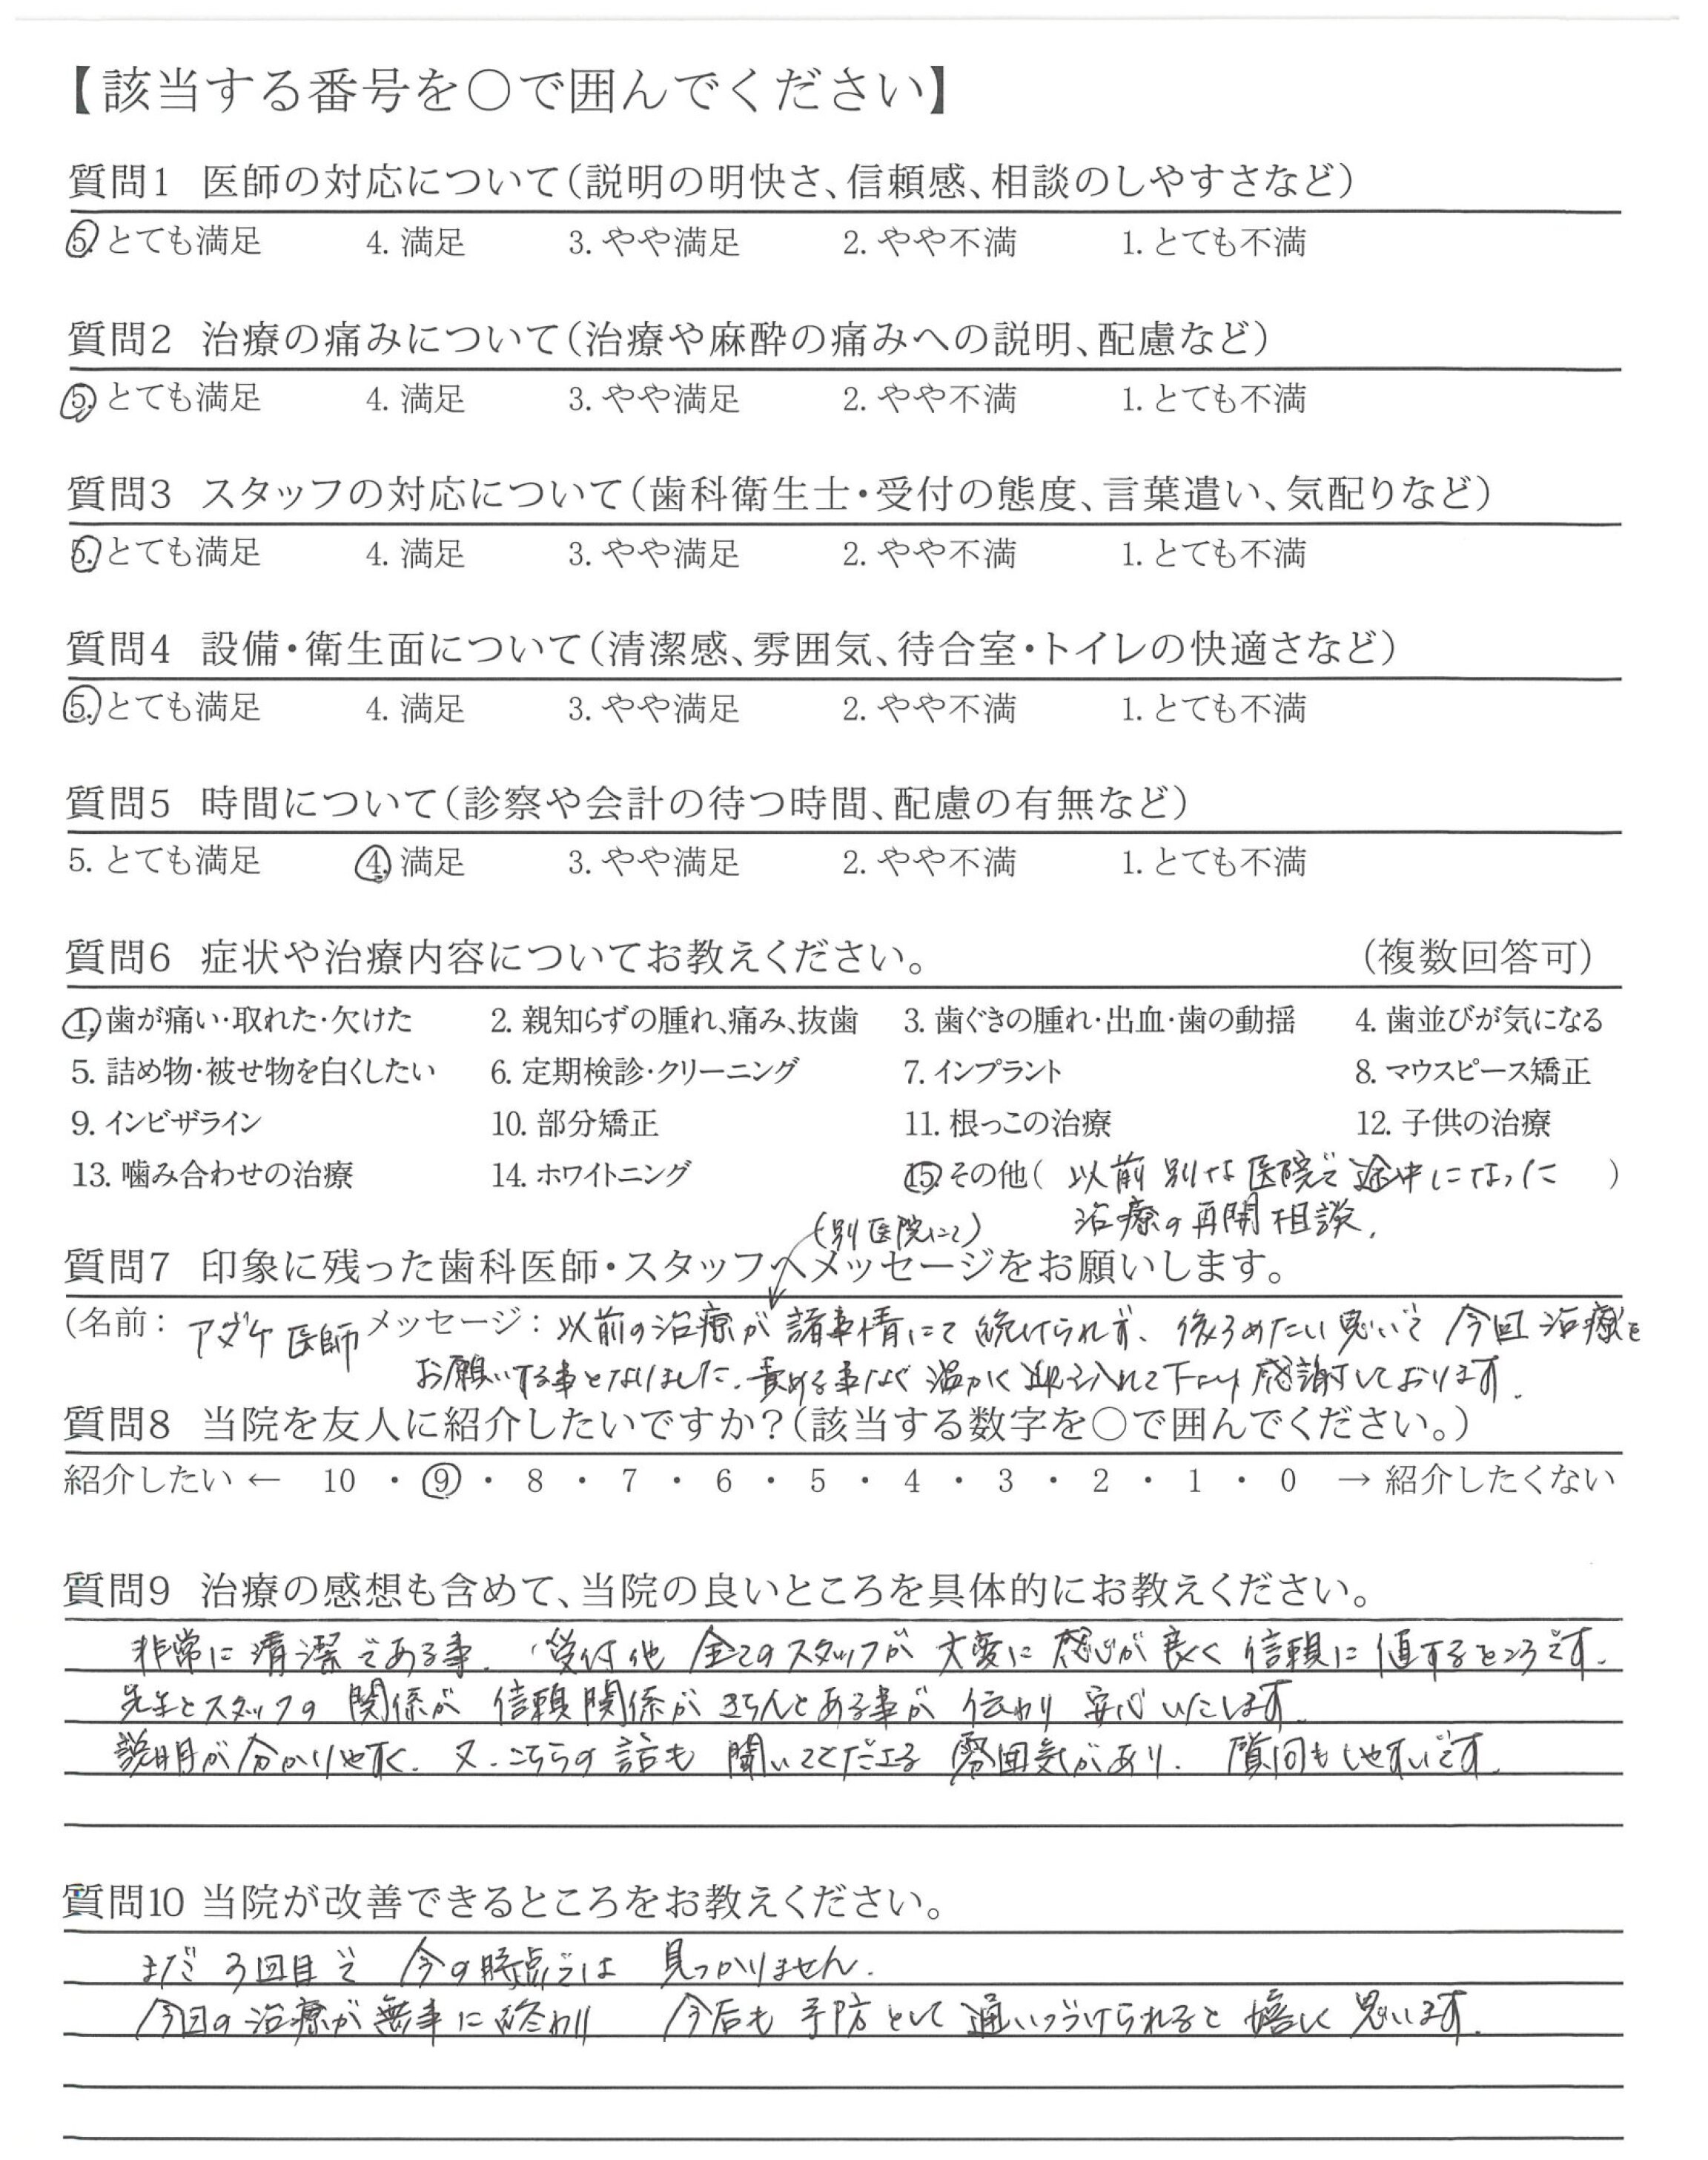 【該当する番号を〇で囲んでください】
質問1 医師の対応について(説明の明快さ、信頼感、相談のしやすさなど)
5. とても満足 4. 満足 3. やや満足 2. やや不満 1. とても不満
質問2 治療の痛みについて(治療や麻酔の痛みへの説明、配慮など)
5. とても満足 4. 満足 3. やや満足 2. やや不満 1. とても不満
質問3 スタッフの対応について(歯科衛生士・受付の態度、言葉遣い、気配りなど)
5. とても満足 4. 満足 3. やや満足 2. やや不満 1. とても不満
質問4 設備・衛生面について(清潔感、雰囲気、待合室・トイレの快適さなど)
5. とても満足 4. 満足 3. やや満足 2. やや不満 1. とても不満
質問5 時間について(診察や会計の待つ時間、配慮の有無など)
5. とても満足 4. 満足 3. やや満足 2. やや不満 1. とても不満
質問6 症状や治療内容についてお教えください。 (複数回答可)
1. 歯が痛い・取れた・欠けた 2. 親知らずの腫れ、痛み、抜歯 3. 歯ぐきの腫れ・出血・歯の動揺 4. 歯並びが気になる
5. 詰め物・被せ物を白くしたい 6. 定期検診・クリーニング 7. インプラント 8. マウスピース矯正
9. インビザライン 10. 部分矯正 11. 根っこの治療 12. 子供の治療
13. 噛み合わせの治療 14. ホワイトニング 15. その他( 以前 別な医院で途中になった )
治療の再開相談.
(別医院にて)
質問7 印象に残った歯科医師・スタッフへメッセージをお願いします。
(名前: アダケ医師 メッセージ: 以前の治療が諸事情にて続けられず、後ろめたい思いで今回治療を
お願いする事となりました. 責める事なく温かく迎え入れて下さり感謝しております.
質問8 当院を友人に紹介したいですか?(該当する数字を〇で囲んでください。)
紹介したい ← 10 ・ 9 ・ 8 ・ 7 ・ 6 ・ 5 ・ 4 ・ 3 ・ 2 ・ 1 ・ 0 → 紹介したくない
質問9 治療の感想も含めて、当院の良いところを具体的にお教えください。
非常に清潔である事. 受付他 全てのスタッフが 大変に 感じが良く 信頼に値するところです.
先生とスタッフの 関係が 信頼関係が きちんとある事が 伝わり 安心いたします.
説明が分かりやすく. 又. こちらの話も 聞いてくださる 雰囲気があり. 質問もしやすいです.
質問10 当院が改善できるところをお教えください。
まだ 3回目で 今の時点では 見つかりません.
今回の治療が無事に終わり 今后も 予防として 通いつづけられると 嬉しく思います.